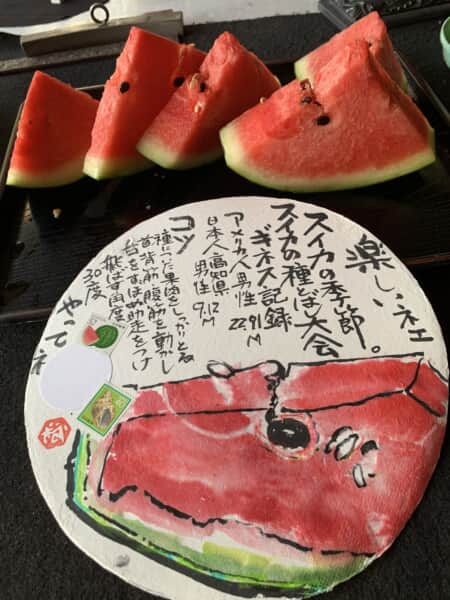 楽しいネェ
スイカの季節。
スイカの種ばし大会
ギネス記録
アメリカ人 男性 22.91M
日本人 高知県 男性 9.12M
コツ
種についた果肉をしっかりとる
首背筋腹筋を動かし
舌をすぼめ助走をつけ
飛ばす角度
30度
やってネ